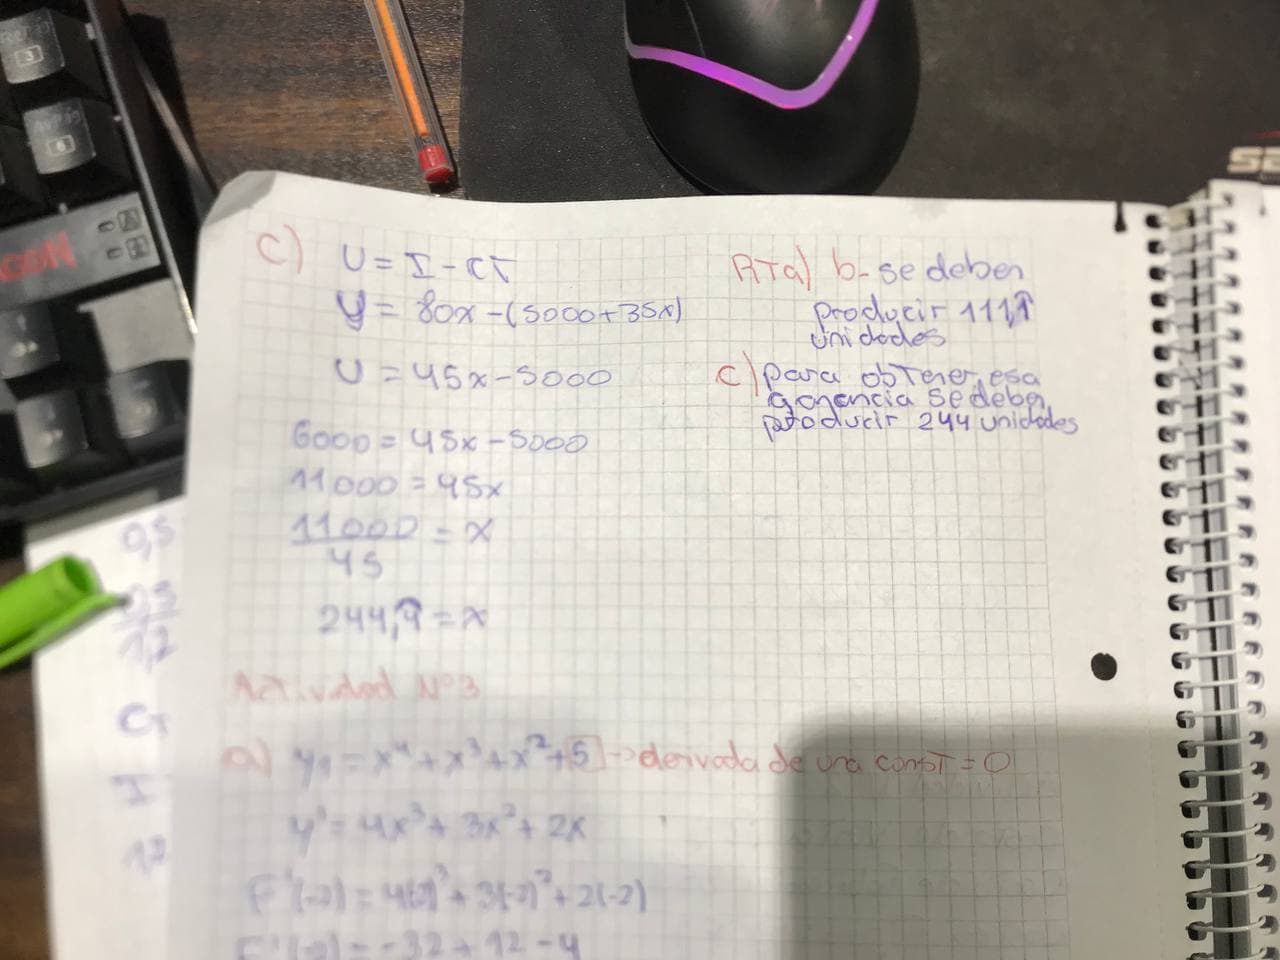 C) U = I - CT
y = 80x - (5000 + 35x)
U = 45x - 5000
6000 = 45x - 5000
11000 = 45x
11000/45 = x
244,4̂ = x
RTa) b- se deben
producir 111,1̂
unidades
C) para obtener esa
ganancia se deben
producir 244 unidades
Actividad N°3
a) y1 = x⁴ + x³ + x² + 5 → derivada de una const = 0
y' = 4x³ + 3x² + 2x
F'(-2) = 4(-2)³ + 3(-2)² + 2(-2)
F'(-2) = -32 + 12 - 4
0,5
0,3
1,2
CT
I
12
3
6